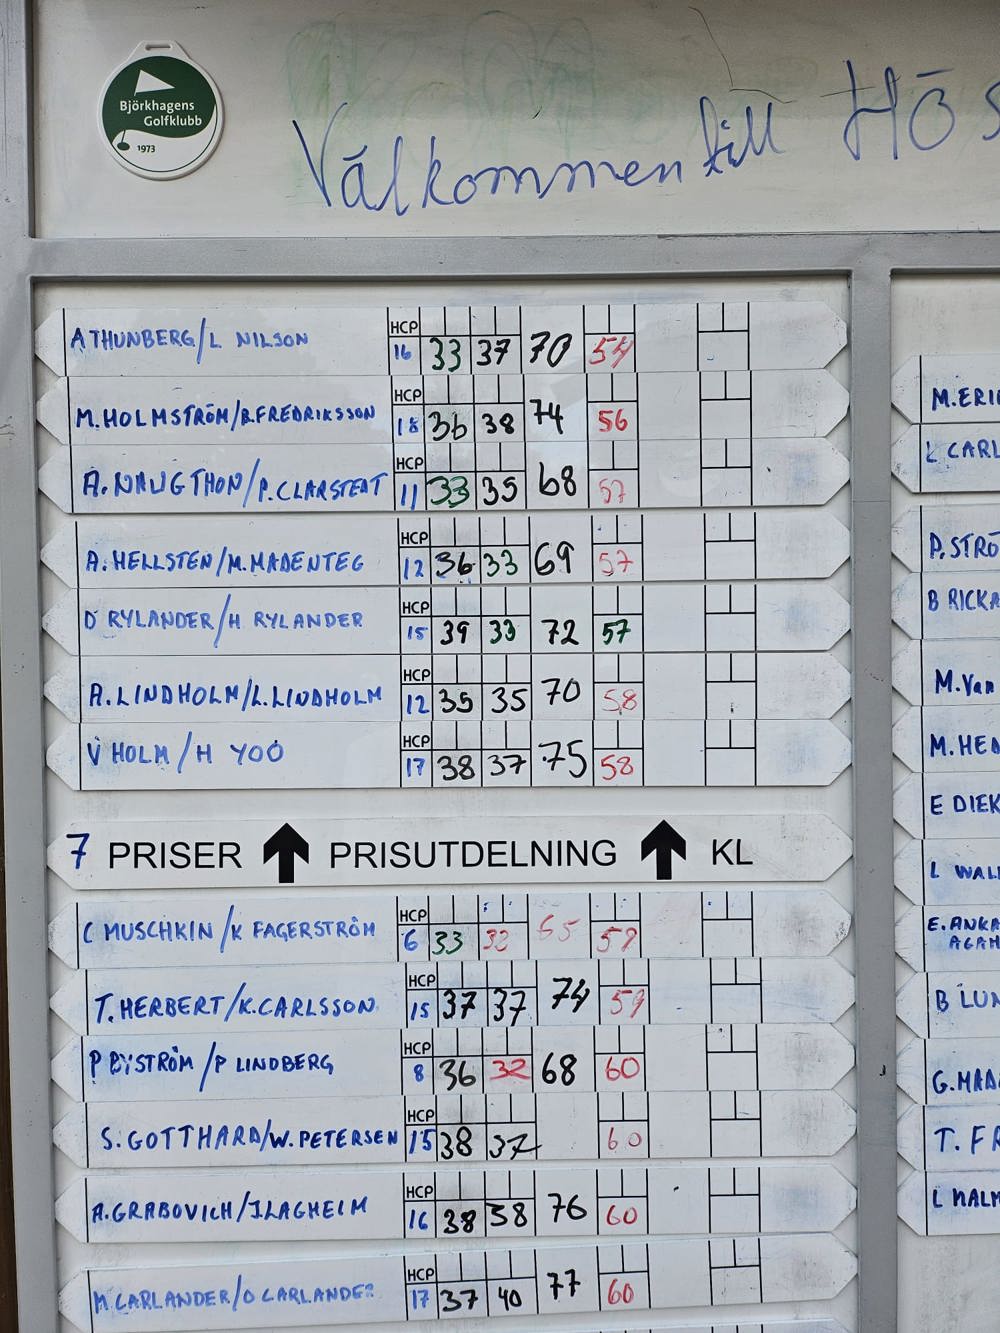 Björkhagens
Golfklubb
1973
Välkommen till Hös
A THUNBERG/L NILSON HCP 16 33 37 70 54
M.HOLMSTRÖM/B.FREDRIKSSON HCP 18 36 38 74 56
A.NAUGTHON/P.CLARSTEDT HCP 11 33 35 68 57
A.HELLSTEN/M.MADENTEG HCP 12 36 33 69 57
D RYLANDER/H RYLANDER HCP 15 39 33 72 57
A.LINDHOLM/L.LINDHOLM HCP 12 35 35 70 58
V HOLM/H YOO HCP 17 38 37 75 58
7 PRISER PRISUTDELNING KL
C MUSCHKIN/K FAGERSTRÖM HCP 6 33 32 65 59
T.HERBERT/K.CARLSSON HCP 15 37 37 74 59
P BYSTRÖM/P LINDBERG HCP 8 36 32 68 60
S.GOTTHARD/W.PETERSEN HCP 15 38 37 60
A.GRABOVICH/J.LAGHEIM HCP 16 38 38 76 60
M.CARLANDER/O CARLANDER HCP 17 37 40 77 60
M.ERI
L CARL
P.STRÖ
B RICKA
M.Van
M.HED
E DIEK
L WALL
E.ANKA
AGAH
B LUN
G.MAD
T. FR
L MALM